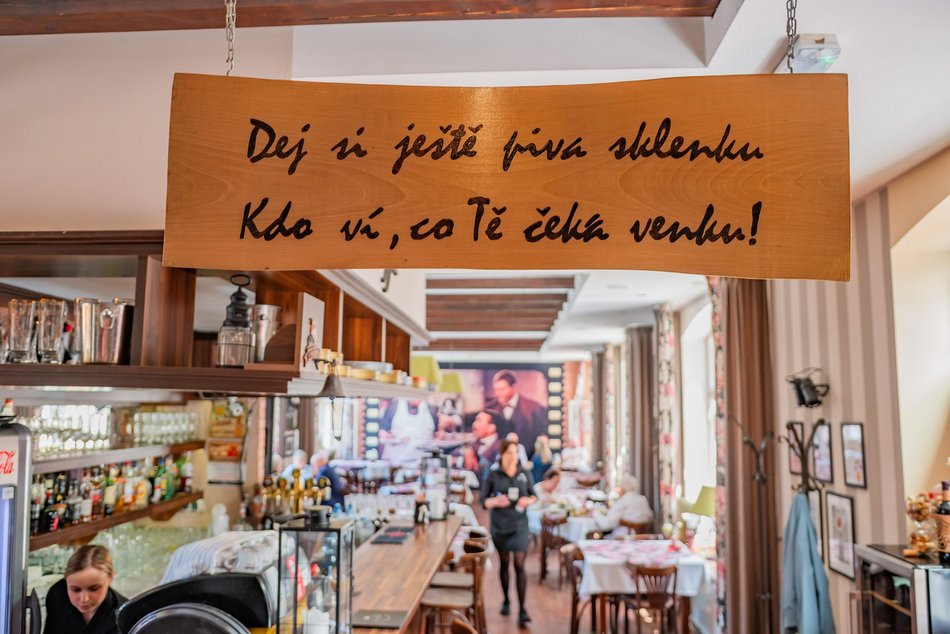 Dej si ještě piva sklenku
Kdo ví, co Tě čeka venku!